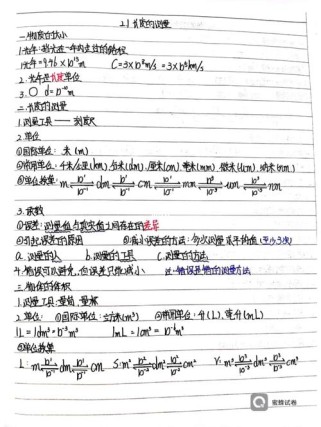 2.1 长度的测量
一.物质的大小
1.光年:指光在一年内走过的路程
1光年=9.46×10¹⁵m C=3×10⁸m/s=3×10⁵km/s
2.光年是长度单位
3.○ d=10⁻¹⁰m
二.长度的测量
1.测量工具——刻度尺
2.单位
①国际单位:米(m)
②常用单位:千米/公里(km),分米(dm),厘米(cm),毫米(mm),微米(um),纳米(nm)
③单位换算 m 10¹ 10⁻¹ dm 10¹ 10⁻¹ cm 10¹ 10⁻¹ mm 10³ 10⁻³ um 10³ 10⁻³ nm
3.读数
①误差:测量值与真实值之间存在的差异
②引起误差的原因 ③减小误差的方法:多次测量求平均值(至少3次)
a.测量的人 b.测量的工具 c.测量的方法
4.错误可以避免,但误差只能减小
三.物体的体积
1.测量工具:量筒,量杯
2.单位: ①国际单位:立方米(m³) ②常用单位:升(L),毫升(mL)
1L=1dm³=10⁻³m³ 1mL=1cm³=10⁻⁶m³
③单位换算
L: m 10¹ 10⁻¹ dm 10¹ 10⁻¹ cm S:m² 10² 10⁻² dm² 10² 10⁻² cm² V:m³ 10³ 10⁻³ dm³ 10³ 10⁻³ cm³
蜜蜂试卷